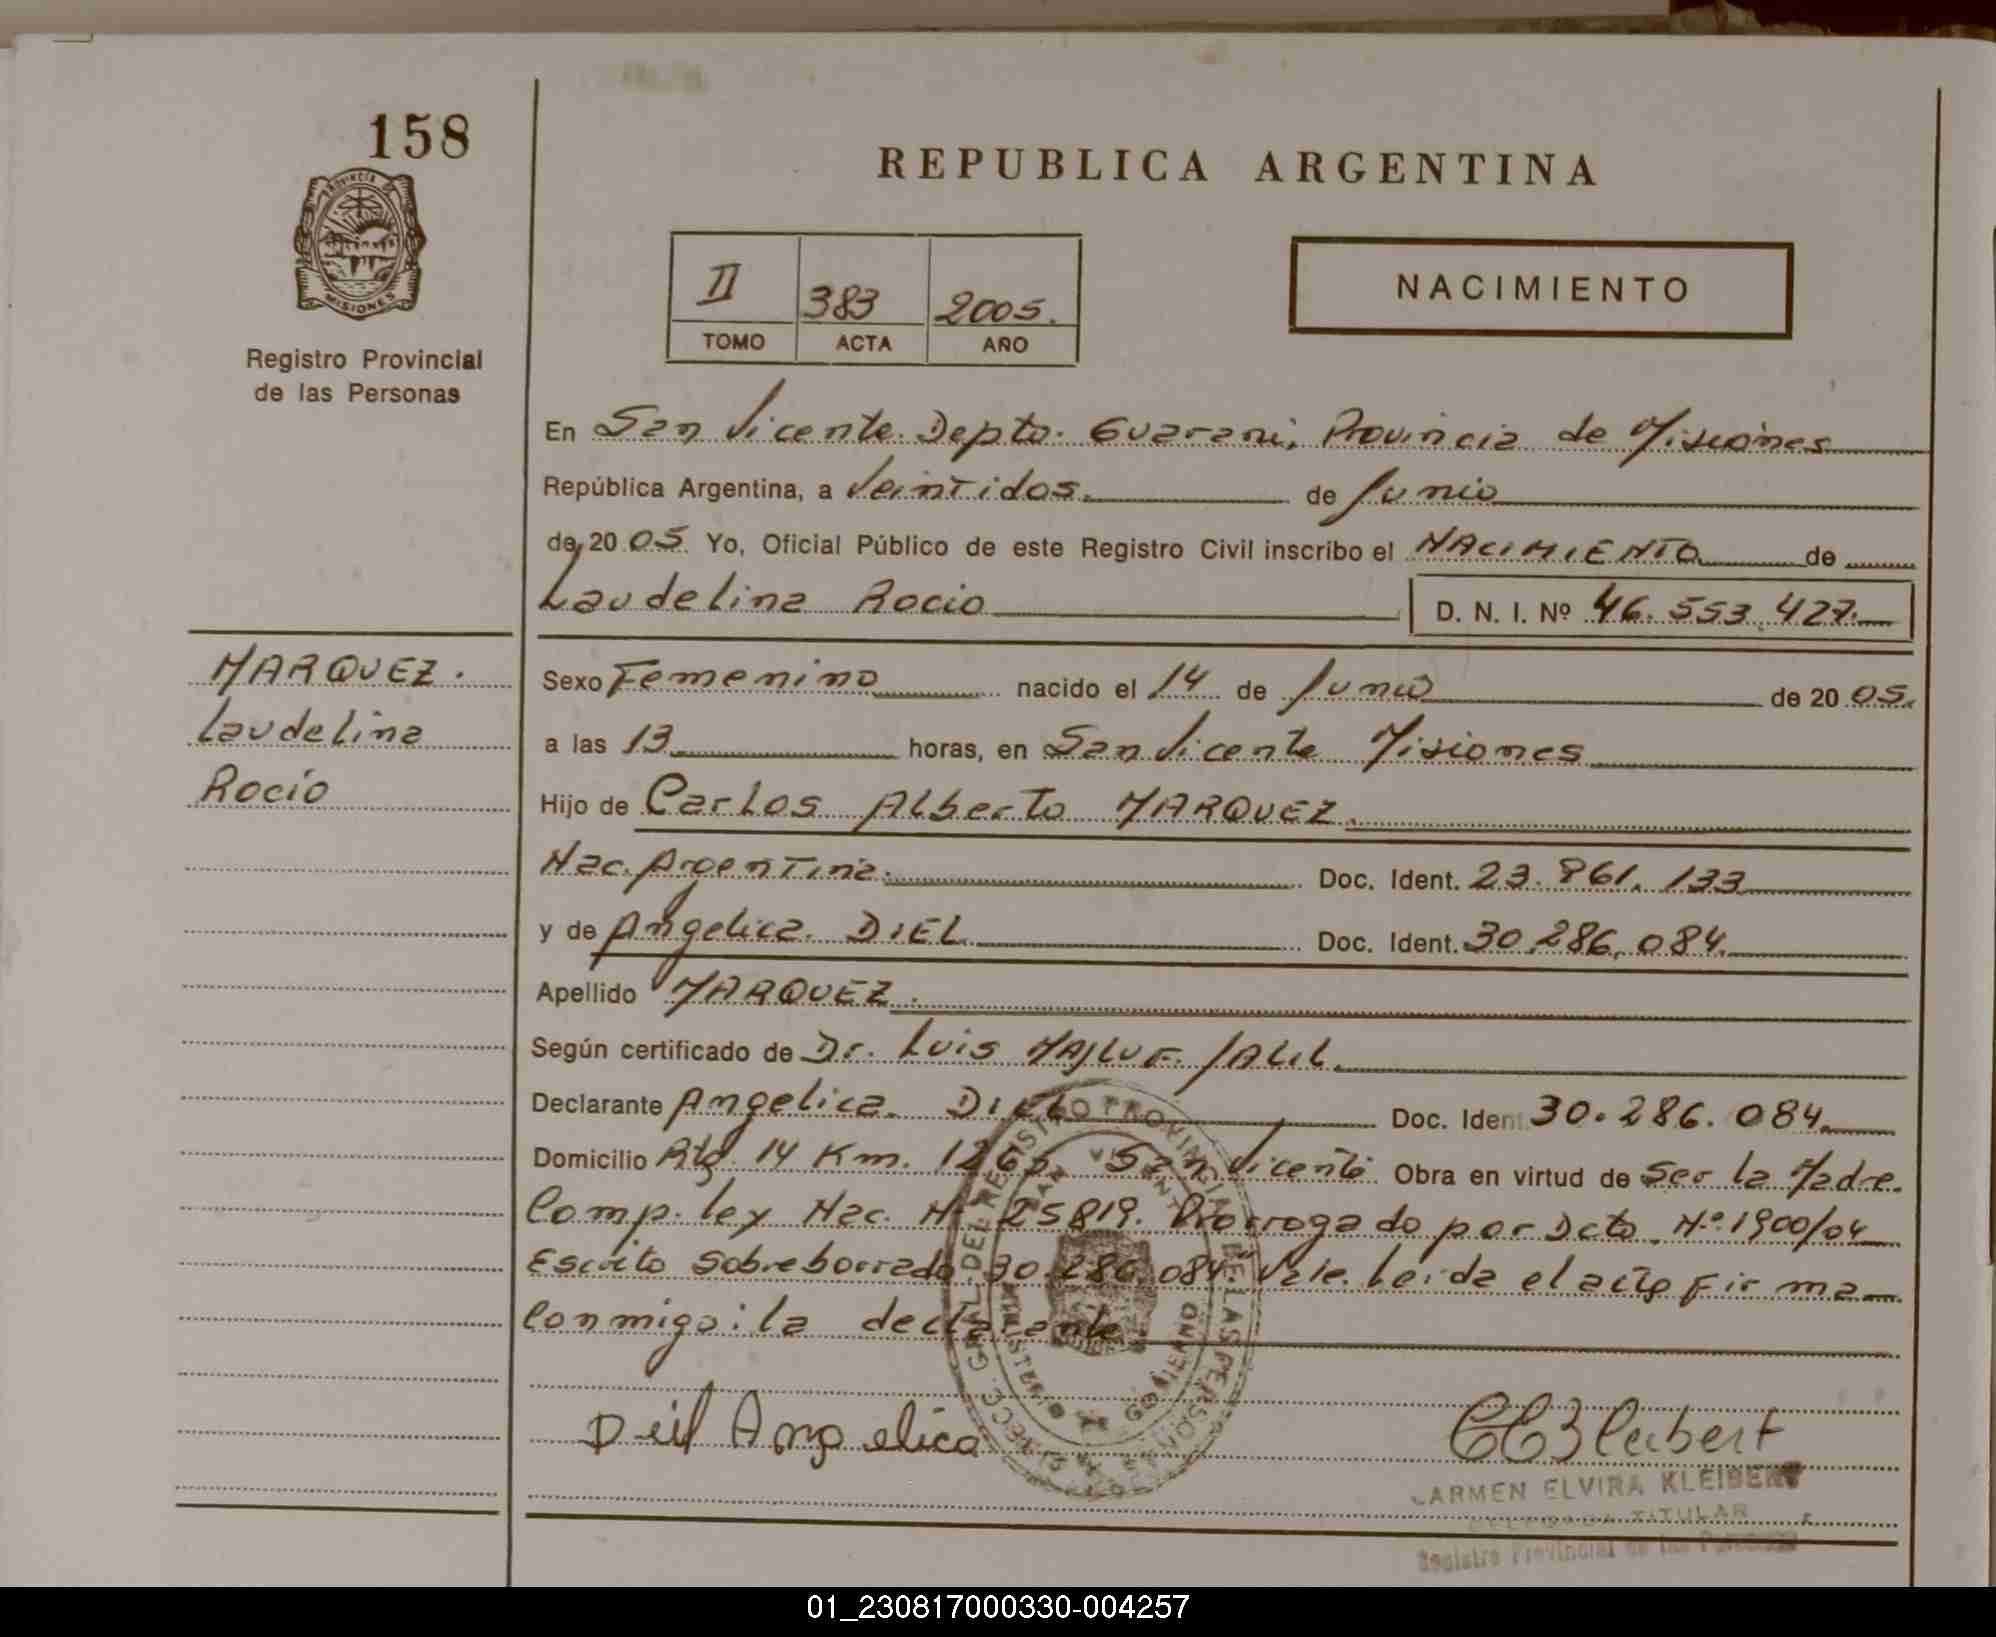 158
PROVINCIA DE
MISIONES
Registro Provincial
de las Personas
REPUBLICA ARGENTINA
II 383 2005.
TOMO ACTA AÑO
NACIMIENTO
En San Vicente Depto. Guarani, Provincia de Misiones
República Argentina, a Veintidos. de Junio
de 20 05. Yo, Oficial Público de este Registro Civil inscribo el NACIMIENTO de
Laudelina Rocio D. N. I. Nº 46.553.427.
MARQUEZ.
Laudelina
Rocío
Sexo Femenino nacido el 14 de Junio de 20 05.
a las 13 horas, en San Vicente Misiones
Hijo de Carlos Alberto MARQUEZ.
Nac. Argentina. Doc. Ident. 23.861.133
y de Angelica DIEL Doc. Ident. 30.286.084.
Apellido MARQUEZ.
Según certificado de Dr. Luis JALIL
Declarante Angelica DIEL Doc. Ident 30.286.084.
Domicilio Rta 14 Km. 1265 San Vicente Obra en virtud de Ser la Madre.
Comp. ley Nac. Nº 25819. Prorrogado por Dcto. Nº 1900/04
Escrito sobreborrado 30.286.084. Vale. Leída el acta Firma
Conmigo: la declarante
DIREC. GRAL. DEL REGISTRO PROVINCIAL DE LAS PERSONAS
SAN VICENTE
MINISTERIO GOBIERNO
Deil Angelica
CARMEN ELVIRA KLEIBERT
DELEGADA TITULAR
Registro Provincial de las Personas
01_230817000330-004257